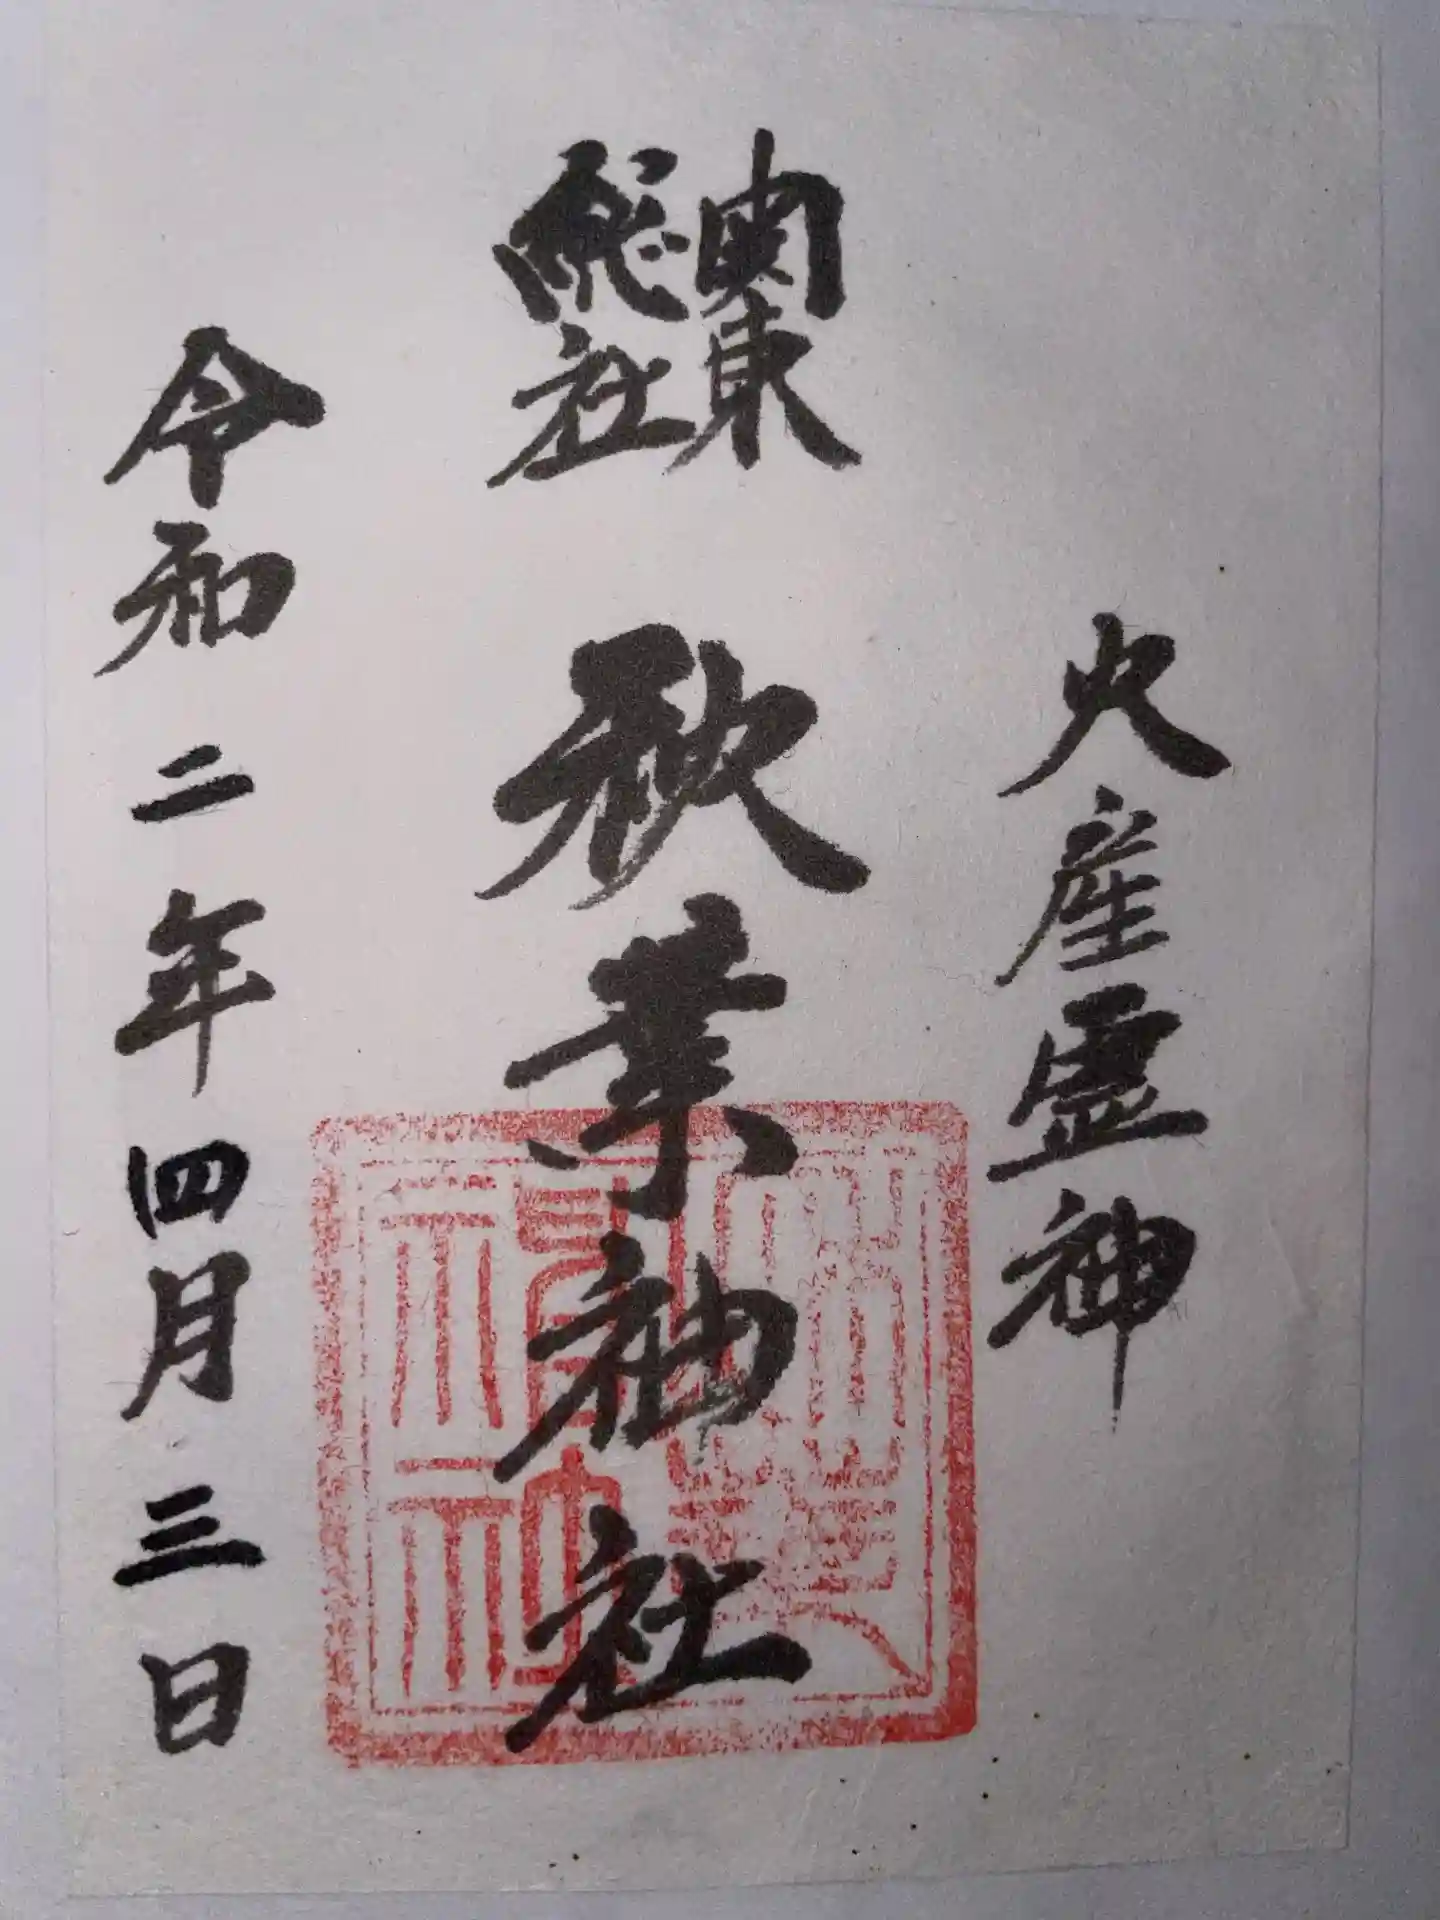 火産霊神
関東
総社
秋葉神社
令和二年四月三日